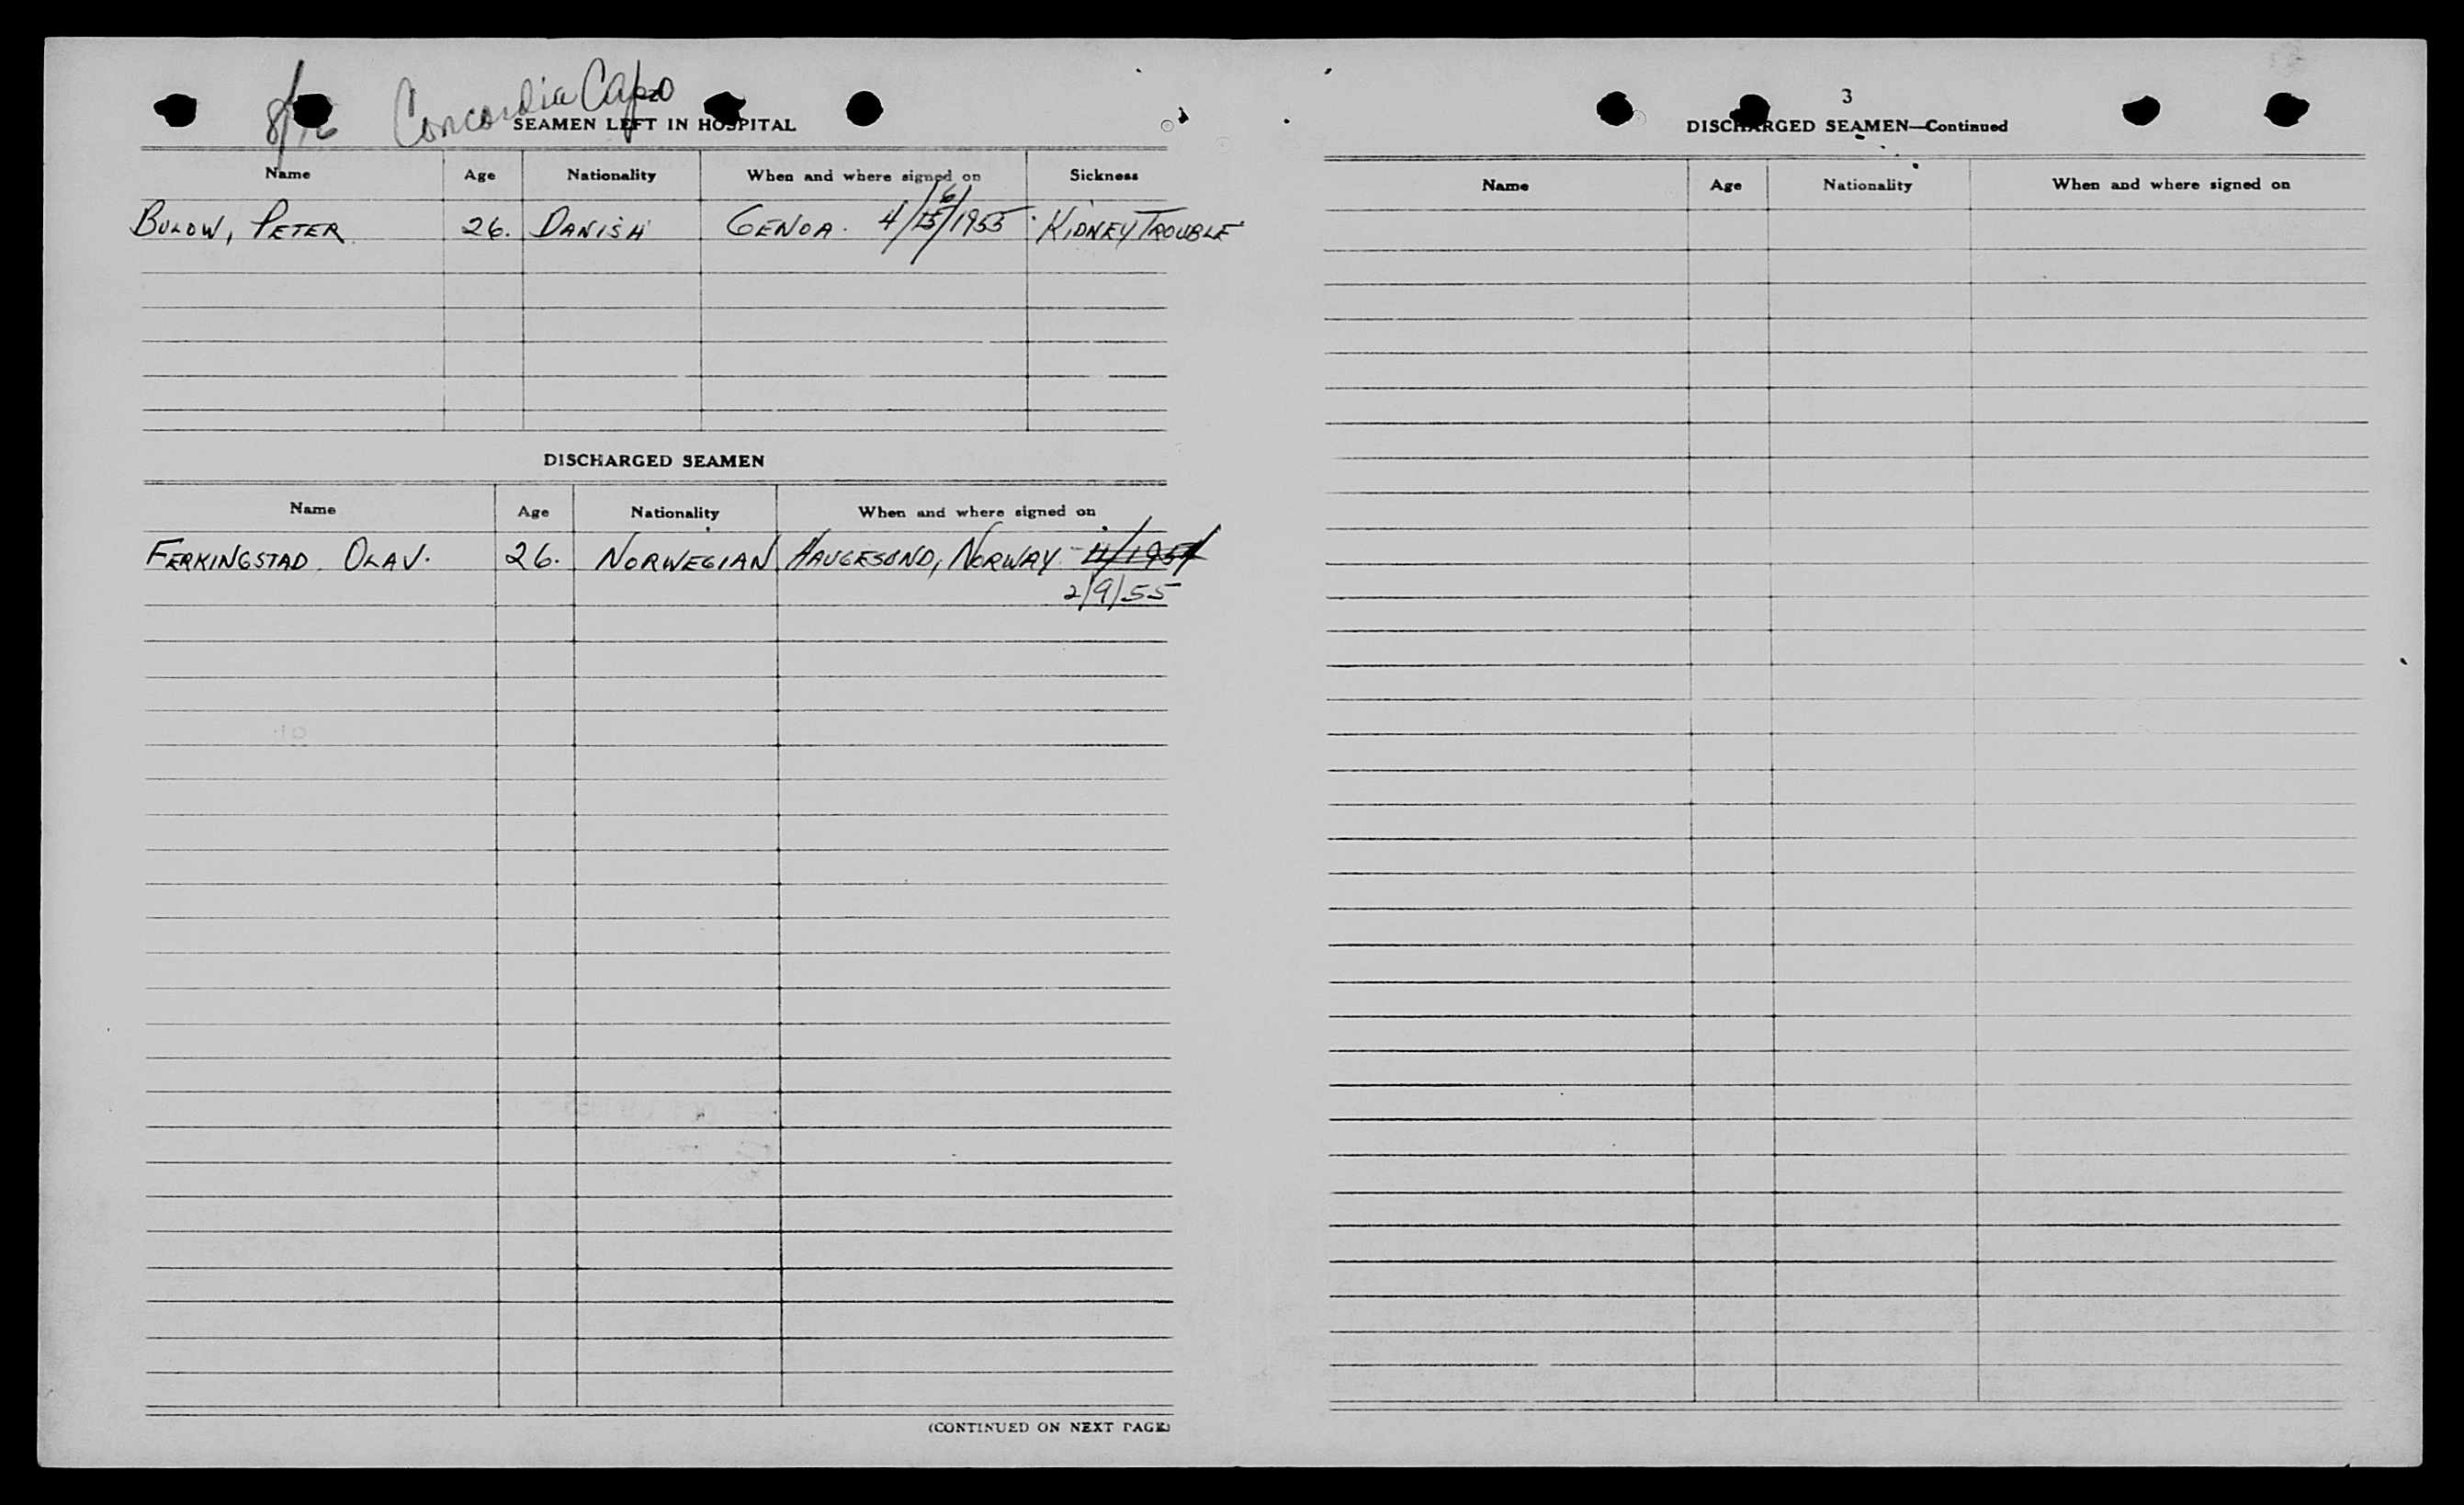 8/16 Concordia Capo
SEAMEN LEFT IN HOSPITAL
Name Age Nationality When and where signed on Sickness
BULOW, PETER 26. DANISH GENOA. 4/15/1955 KIDNEY TROUBLE
6
DISCHARGED SEAMEN
Name Age Nationality When and where signed on
FERKINGSTAD OLAV. 26. NORWEGIAN HAUGESUND, NORWAY - 11/1954
2/9/55
(CONTINUED ON NEXT PAGE)
3
DISCHARGED SEAMEN—Continued
Name Age Nationality When and where signed on